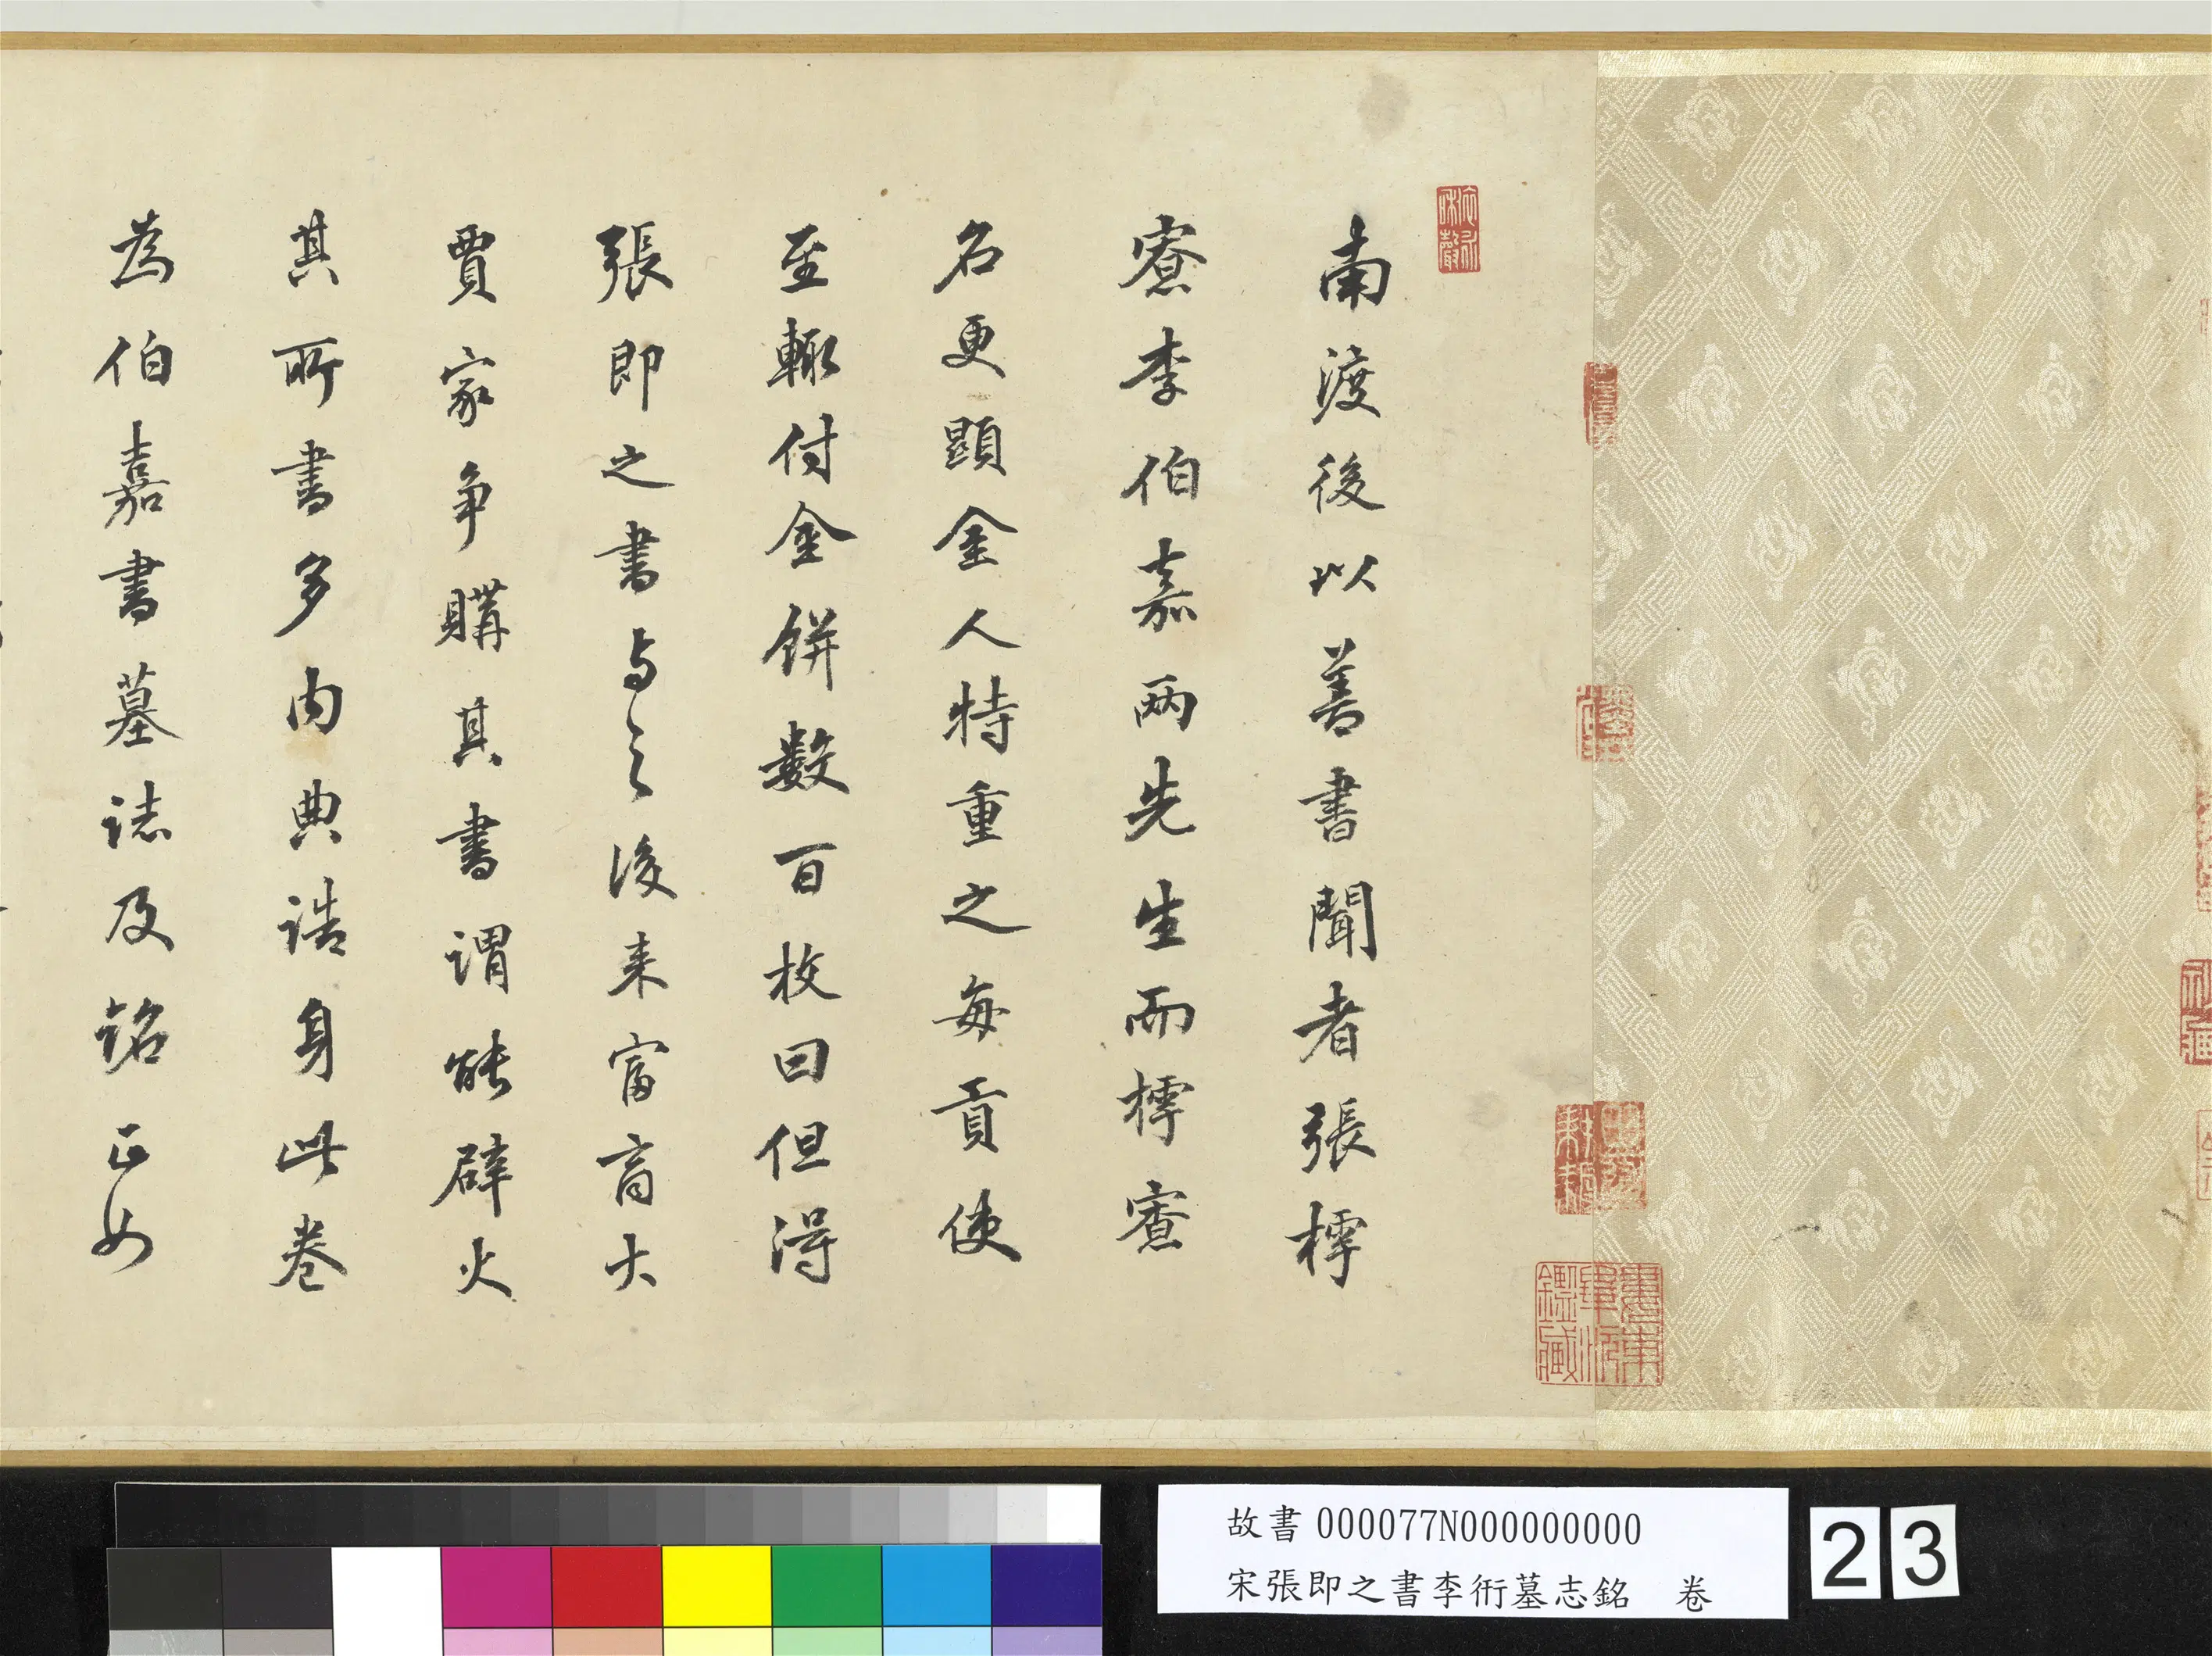 南渡後以善書聞者張樗
寮李伯嘉兩先生而樗寮
名更顯金人特重之每貢使
至輙付金餅數百枚曰但得
張即之書与之後来富商大
賈家争購其書謂能辟火
其所書多内典誥身此卷
為伯嘉書墓誌及銘正如
故書 000077N000000000
宋張即之書李衎墓志銘 卷
23